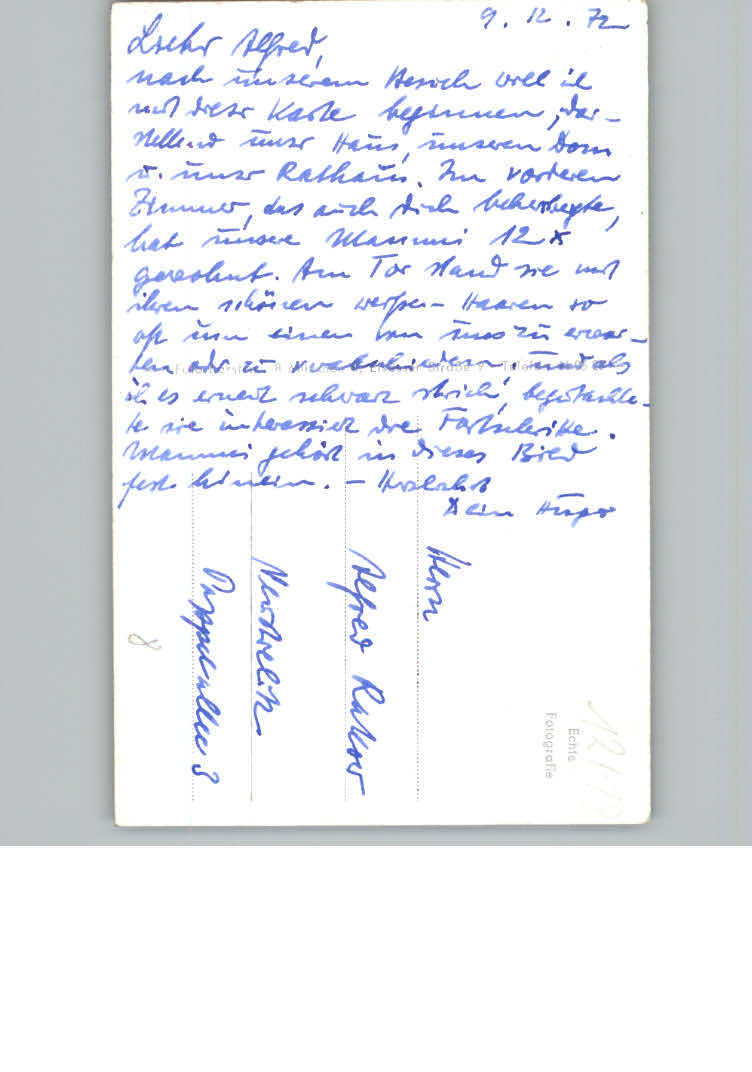 9. 12. 72
Lieber Alfred,
nach unserem Besuch will ich
mit dieser Karte beginnen, dar-
stellend unser Haus, unseren Dom
u. unser Rathaus. Im vorderen
Zimmer, das auch Dich beherbergte,
hat unsere Mammi 12 x
gewohnt. Am Tor stand sie mit
ihren schönen weißen Haaren so
oft um einen von uns zu erwar-
ten oder zu verabschieden. Und als
ich es erneut schwarz strich, begutachte-
te sie interessiert die Fortschritte.
Mammi gehört in dieses Bild
fest hinein. – Herzlichst
Dein Hugo
Herrn
Alfred Rakow
Neustrelitz
Pappelallee 3
8
Echte
Fotografie